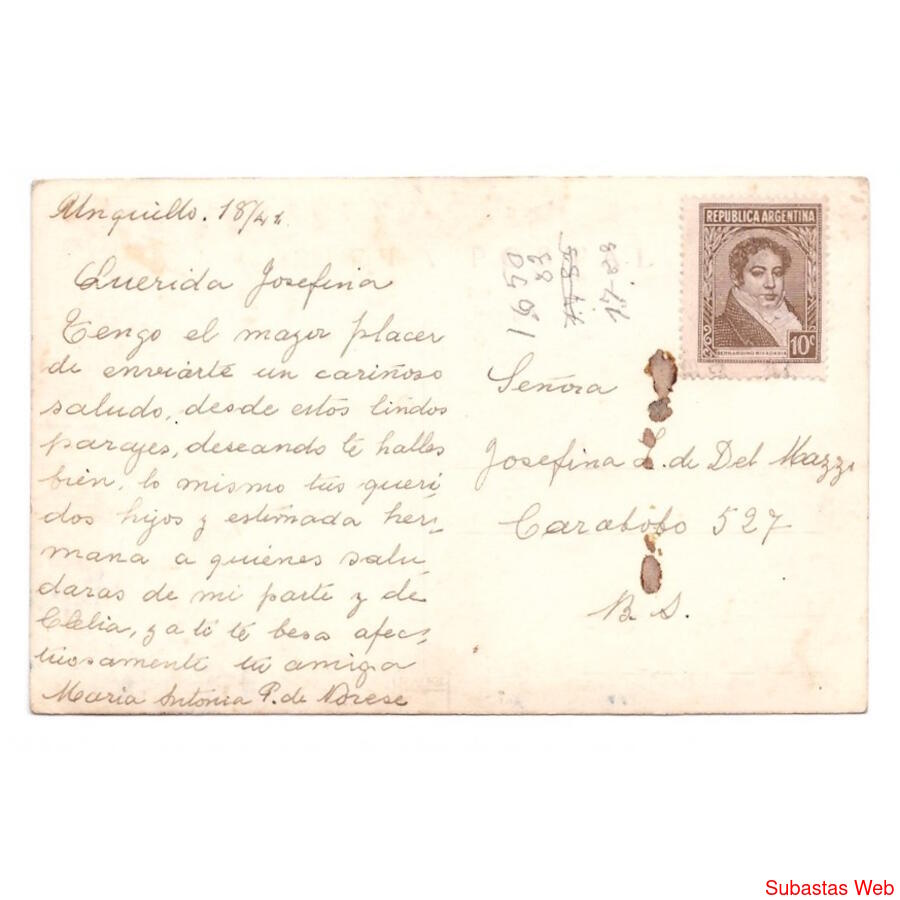 Unquillo. 18/41.
Querida Josefina
Tengo el mayor placer
de enviarte un cariñoso
saludo, desde estos lindos
parajes, deseando te halles
bien, lo mismo tus queri
dos hijos y estimada her-
mana a quiénes salu
daras de mi parte y de
Clelia, y a ti te besa afec-
tuosamente tu amiga
Maria Antonia P. de Norese
1650
83
17-83
REPUBLICA ARGENTINA
BERNARDINO RIVADAVIA
10c
Señora
Josefina L. de Del Mazzo
Carabobo 527
B. S.
Subastas Web